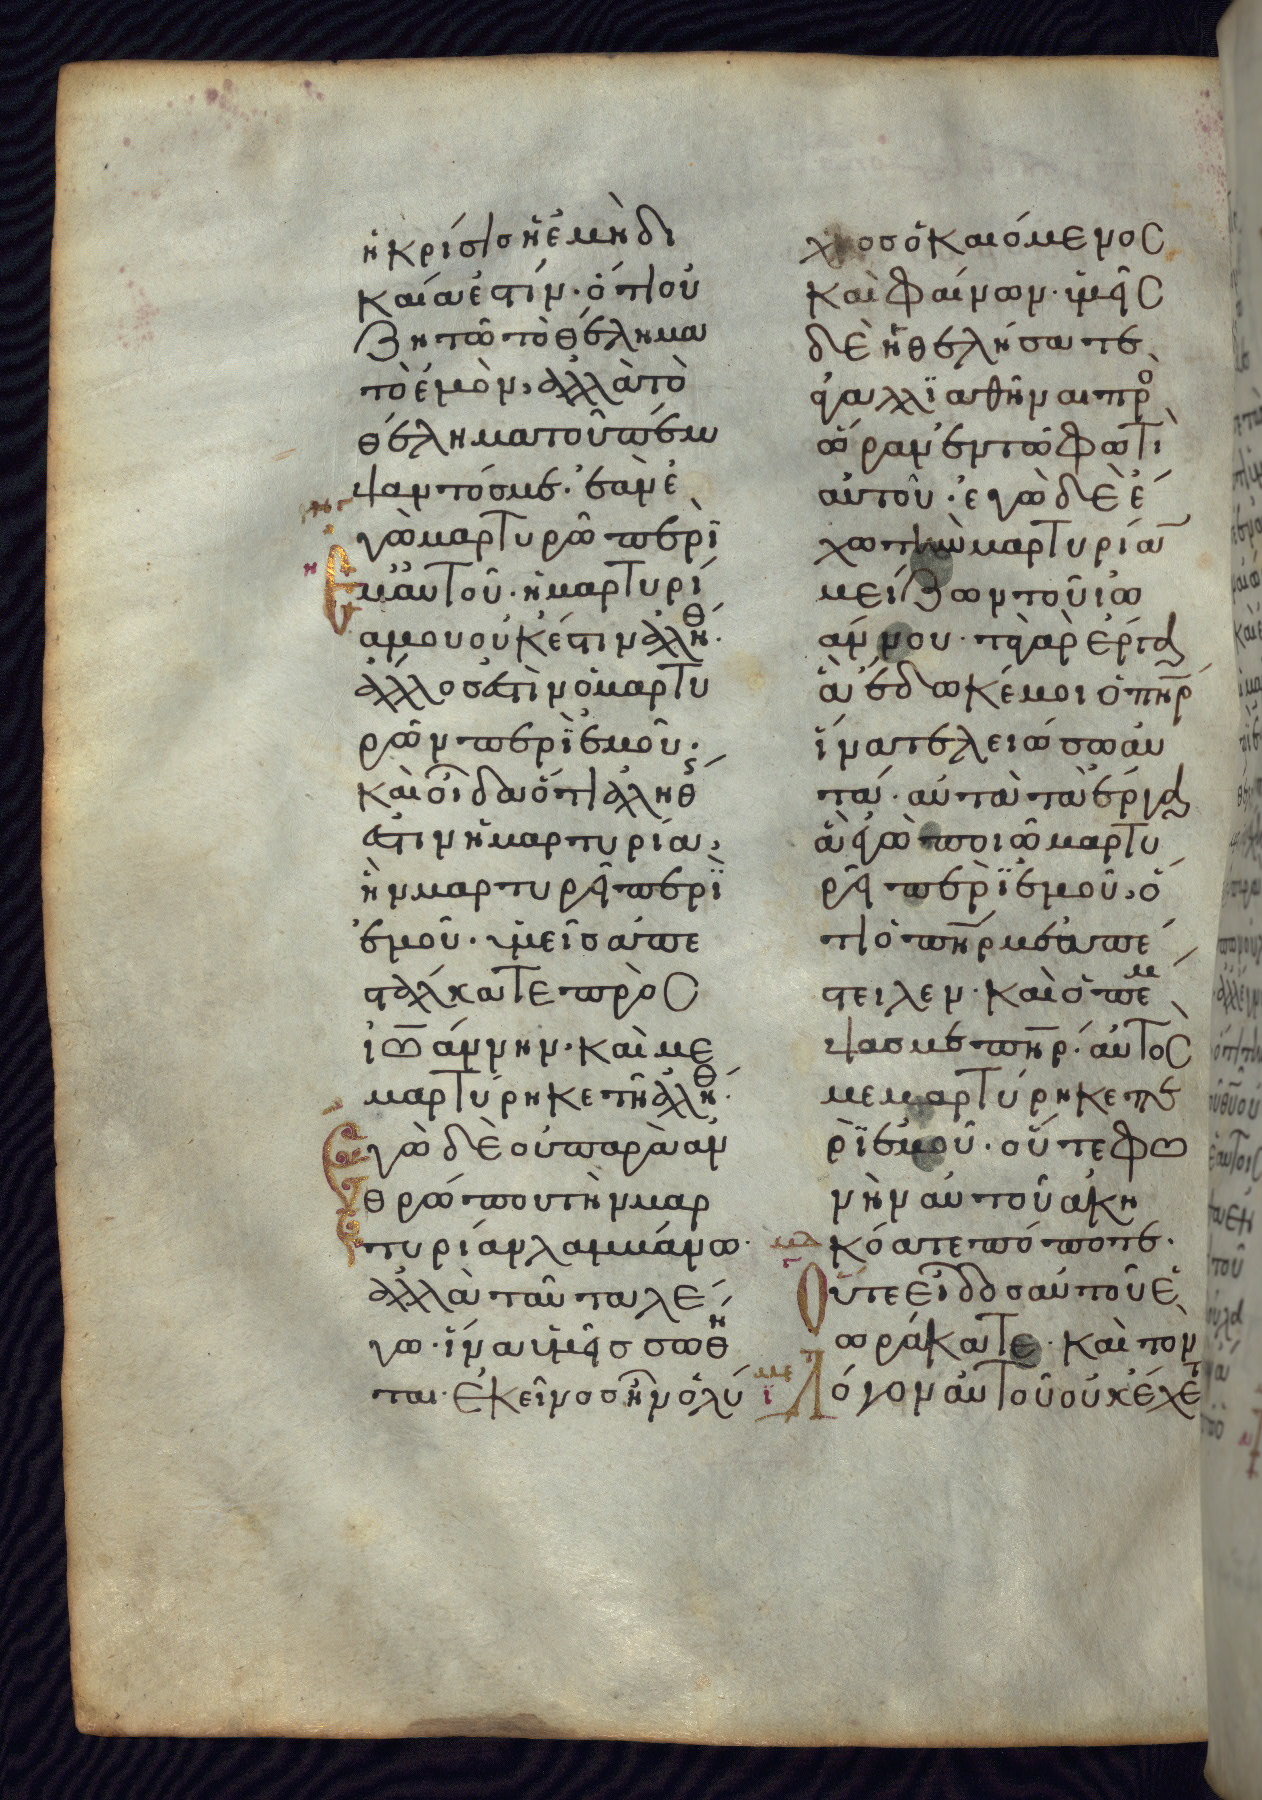 ἡ κρίσις ἡ ἐμὴ δι
καία ἐστίν· ὅτι οὐ
ζητῶ τὸ θέλημα
τὸ ἐμὸν, ἀλλὰ τὸ
θέλημα τοῦ πέμ
ψαντός με· ἐὰν ἐ
γὼ μαρτυρῶ περὶ
ἐμαυτοῦ· ἡ μαρτυρί
α μου οὐκ ἔστιν ἀληθή·
ἄλλος ἐστὶν ὁ μαρτυ
ρῶν περὶ ἐμοῦ·
καὶ οἶδα ὅτι ἀληθής
ἐστιν ἡ μαρτυρία,
ἣν μαρτυρεῖ περὶ
ἐμοῦ· ὑμεῖς ἀπε
στάλκατε πρὸς
ἰωάννην· καὶ με
μαρτύρηκε τῇ ἀληθή·
Ἐγὼ δὲ οὐ παρὰ ἀν
θρώπου τὴν μαρ
τυρίαν λαμβάνω·
ἀλλὰ ταῦτα λέ
γω· ἵνα ὑμεῖς σωθῆ
ται· ἐκεῖνος ἦν ὁ λύ
χνος ὁ καιόμενος
καὶ φαίνων· ὑμεῖς
δὲ ἠθελήσατε
ἀγαλλιαθῆναι πρὸ
ὥραν ἐν τῷ φωτὶ
αὐτοῦ· ἐγὼ δὲ ἔ
χω τὴν μαρτυρίαν
μείζων τοῦ ἰω
άννου· τὰ γὰρ ἔργα
ἃ ἔδωκέ μοι ὁ πηρ
ἵνα τελειώσω αὐ
τά· αὐτὰ τὰ ἔργα
ἃ ἐγὼ ποιῶ μαρτυ
ρεῖ περὶ ἐμοῦ, ὅ
τι ὁ πηρ με ἀπέ
στειλεν· καὶ ὁ πέμ
ψας με πηρ· αὐτὸς
μεμαρτύρηκε πε
ρὶ ἐμοῦ· οὔτε φω
νὴν αὐτοῦ ἀκη
κόατε πώποτε·
Οὔτε εἶδος αὐτοῦ ἑ
ωράκατε· καὶ τὸν
λόγον αὐτοῦ οὐκ ἔχετ